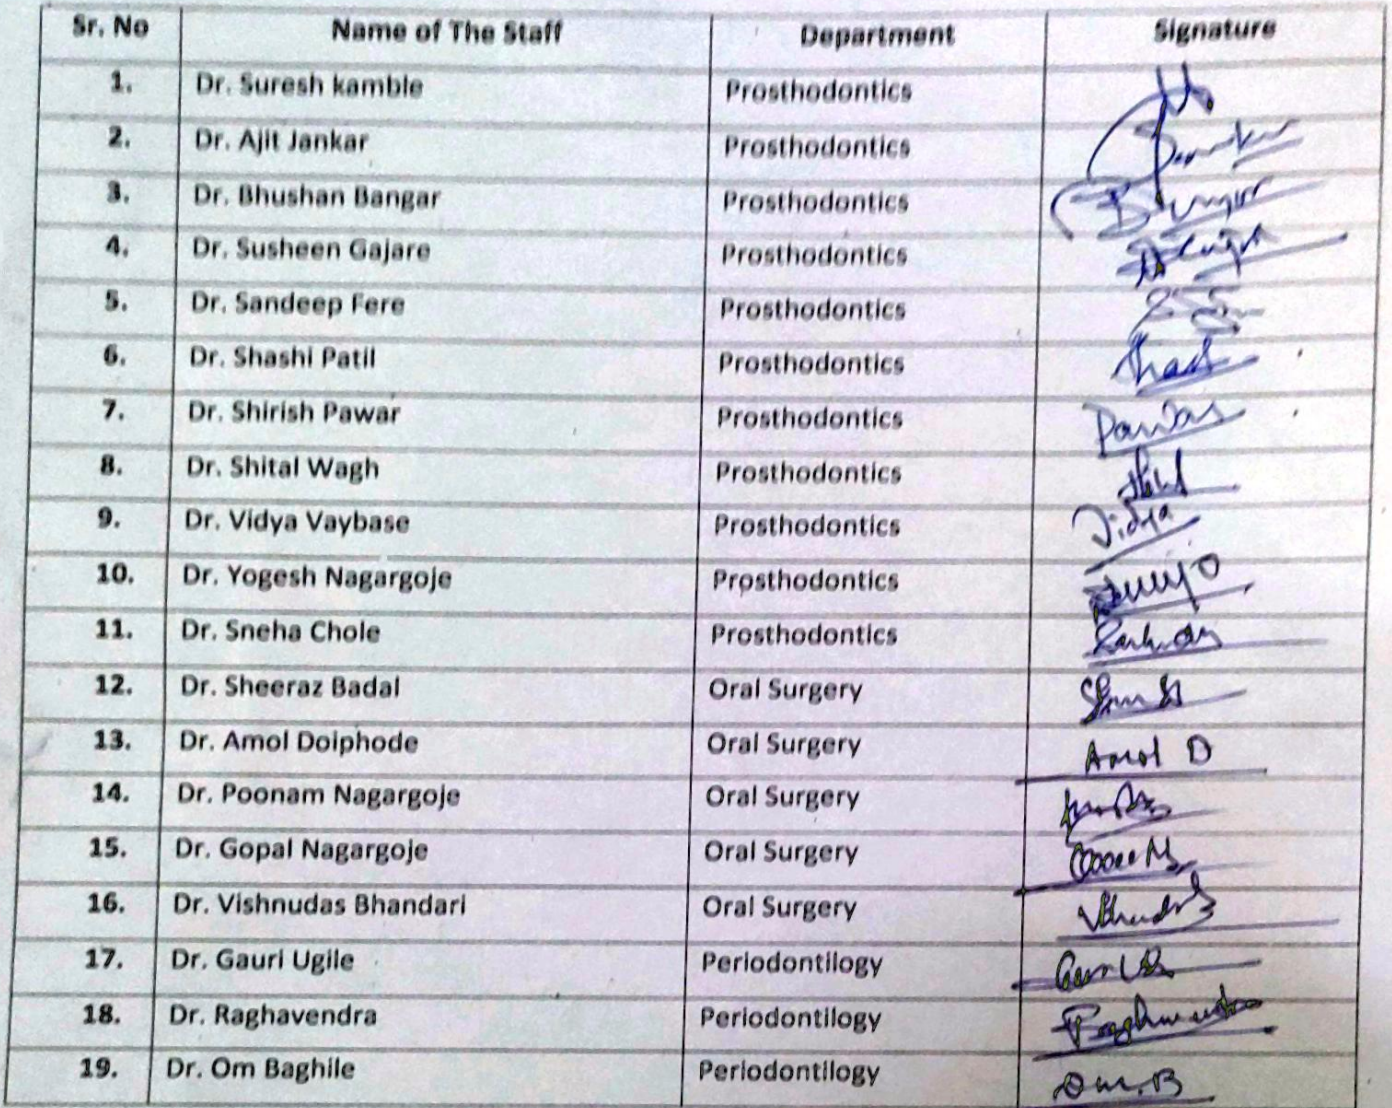 Sr. No Name of The Staff Department Signature
1. Dr. Suresh kamble Prosthodontics
2. Dr. Ajit Jankar Prosthodontics
3. Dr. Bhushan Bangar Prosthodontics
4. Dr. Susheen Gajare Prosthodontics
5. Dr. Sandeep Fere Prosthodontics
6. Dr. Shashi Patil Prosthodontics
7. Dr. Shirish Pawar Prosthodontics
8. Dr. Shital Wagh Prosthodontics
9. Dr. Vidya Vaybase Prosthodontics Vidya
10. Dr. Yogesh Nagargoje Prosthodontics
11. Dr. Sneha Chole Prosthodontics
12. Dr. Sheeraz Badal Oral Surgery
13. Dr. Amol Doiphode Oral Surgery Amol D
14. Dr. Poonam Nagargoje Oral Surgery
15. Dr. Gopal Nagargoje Oral Surgery
16. Dr. Vishnudas Bhandari Oral Surgery
17. Dr. Gauri Ugile Periodontilogy
18. Dr. Raghavendra Periodontilogy
19. Dr. Om Baghile Periodontilogy Om.B